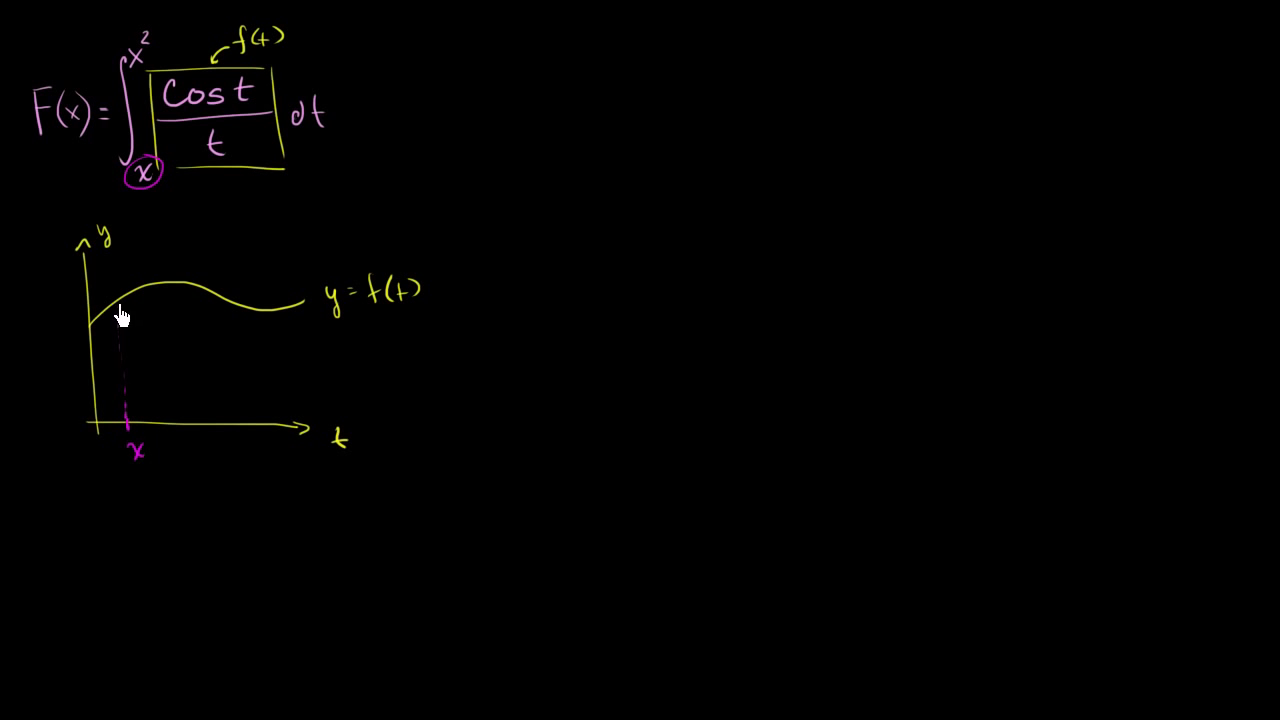 f(t)
F(x) = ∫ₓ^x² cos t / t dt
y
y = f(t)
t
x